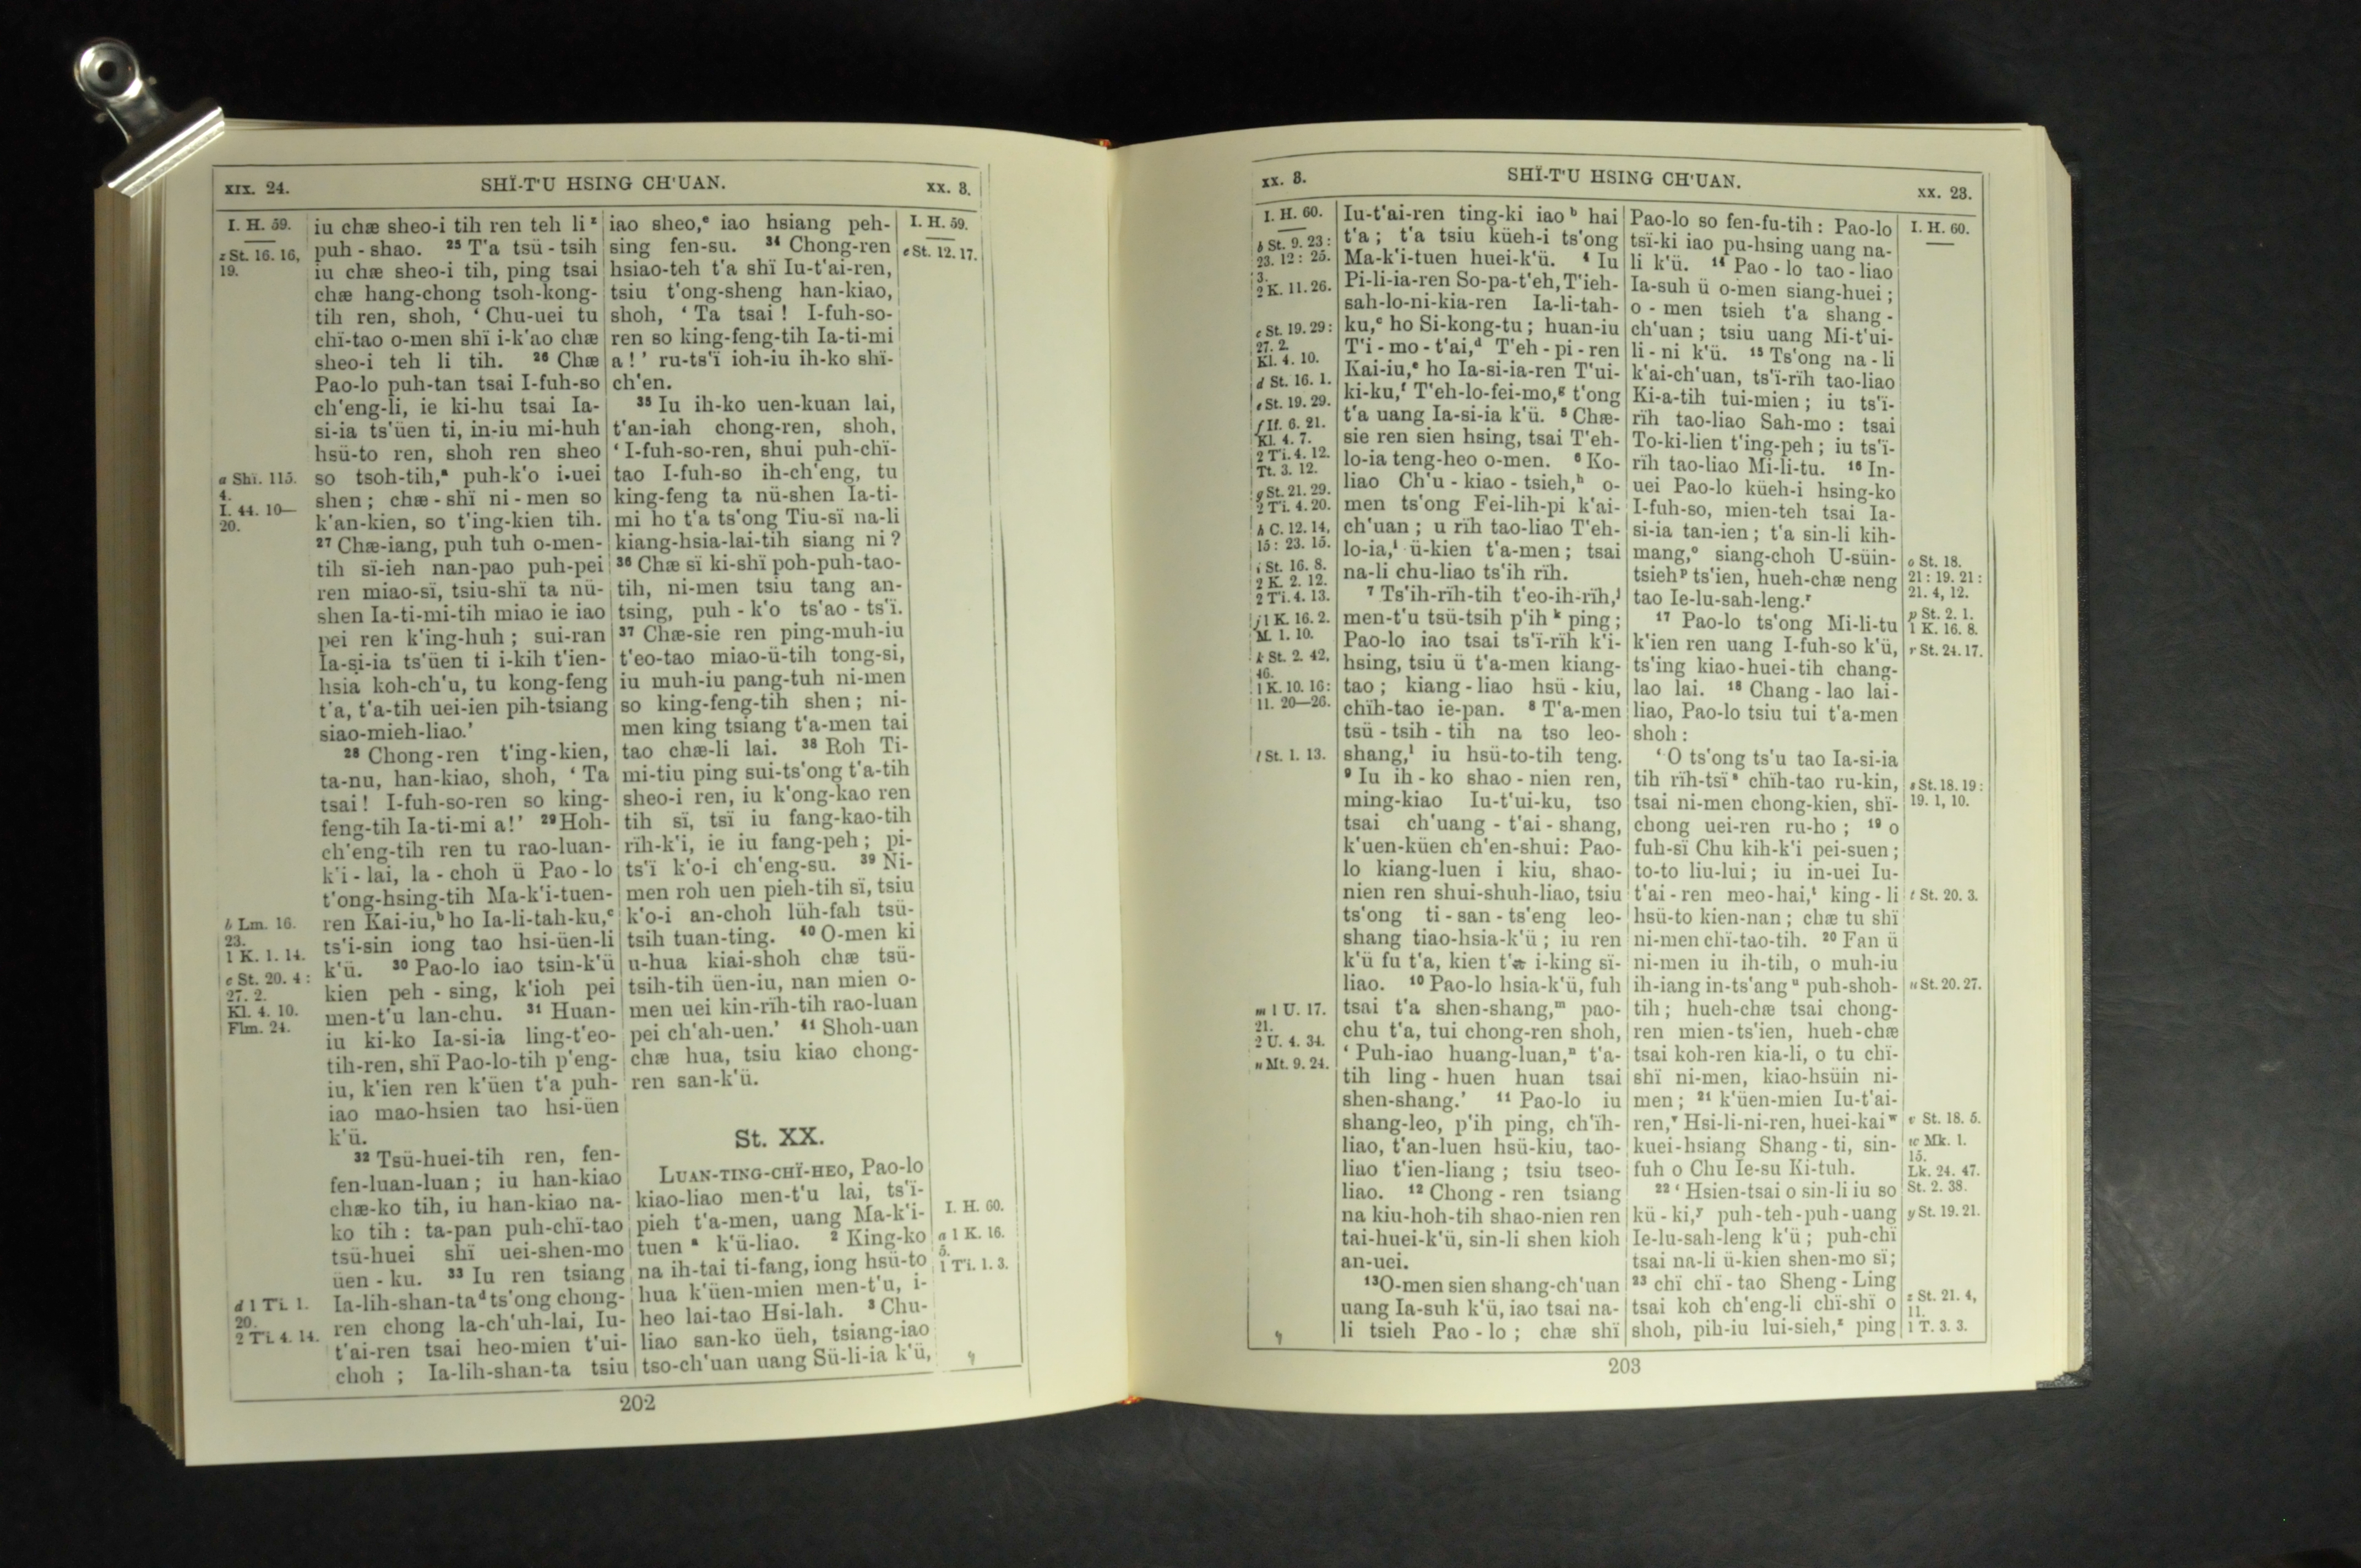 XIX. 24.
SHÏ-T'U HSING CH'UAN.
XX. 3.
I. H. 59.
z St. 16. 16,
19.
a Shï. 115.
4.
I. 44. 10—
20.
b Lm. 16.
23.
1 K. 1. 14.
c St. 20. 4:
27. 2.
Kl. 4. 10.
Flm. 24.
d 1 T'i. 1.
20.
2 T'i. 4. 14.
iu chæ sheo-i tih ren teh li ᶻ
puh - shao. ²⁵ T'a tsü - tsih
iu chæ sheo-i tih, ping tsai
chæ hang-chong tsoh-kong-
tih ren, shoh, ‘ Chu-uei tu
chï-tao o-men shï i-k'ao chæ
sheo-i teh li tih. ²⁶ Chæ
Pao-lo puh-tan tsai I-fuh-so
ch'eng-li, ie ki-hu tsai Ia-
si-ia ts'üen ti, in-iu mi-huh
hsü-to ren, shoh ren sheo
so tsoh-tih,ᵃ puh-k'o i-uei
shen ; chæ - shï ni - men so
k'an-kien, so t'ing-kien tih.
²⁷ Chæ-iang, puh tuh o-men-
tih sï-ieh nan-pao puh-pei
ren miao-sï, tsiu-shï ta nü-
shen Ia-ti-mi-tih miao ie iao
pei ren k'ing-huh ; sui-ran
Ia-si-ia ts'üen ti i-kih t'ien-
hsia koh-ch'u, tu kong-feng
t'a, t'a-tih uei-ien pih-tsiang
siao-mieh-liao.’
²⁸ Chong-ren t'ing-kien,
ta-nu, han-kiao, shoh, ‘ Ta
tsai ! I-fuh-so-ren so king-
feng-tih Ia-ti-mi a!’ ²⁹ Hoh-
ch'eng-tih ren tu rao-luan-
k'i - lai, la - choh ü Pao - lo
t'ong-hsing-tih Ma-k'i-tuen-
ren Kai-iu,ᵇ ho Ia-li-tah-ku,ᶜ
ts'i-sin iong tao hsi-üen-li
k'ü. ³⁰ Pao-lo iao tsin-k'ü
kien peh - sing, k'ioh pei
men-t'u lan-chu. ³¹ Huan-
iu ki-ko Ia-si-ia ling-t'eo-
tih-ren, shï Pao-lo-tih p'eng-
iu, k'ien ren k'üen t'a puh-
iao mao-hsien tao hsi-üen
k'ü.
³² Tsü-huei-tih ren, fen-
fen-luan-luan ; iu han-kiao
chæ-ko tih, iu han-kiao na-
ko tih : ta-pan puh-chï-tao
tsü-huei shï uei-shen-mo
üen - ku. ³³ Iu ren tsiang
Ia-lih-shan-taᵈ ts'ong chong-
ren chong la-ch'uh-lai, Iu-
t'ai-ren tsai heo-mien t'ui-
choh ; Ia-lih-shan-ta tsiu
iao sheo,ᵉ iao hsiang peh-
sing fen-su. ³⁴ Chong-ren
hsiao-teh t'a shï Iu-t'ai-ren,
tsiu t'ong-sheng han-kiao,
shoh, ‘ Ta tsai ! I-fuh-so-
ren so king-feng-tih Ia-ti-mi
a !’ ru-ts'ï ioh-iu ih-ko shï-
ch'en.
³⁵ Iu ih-ko uen-kuan lai,
t'an-iah chong-ren, shoh,
‘ I-fuh-so-ren, shui puh-chï-
tao I-fuh-so ih-ch'eng, tu
king-feng ta nü-shen Ia-ti-
mi ho t'a ts'ong Tiu-sï na-li
kiang-hsia-lai-tih siang ni ?
³⁶ Chæ sï ki-shï poh-puh-tao-
tih, ni-men tsiu tang an-
tsing, puh - k'o ts'ao - ts'ï.
³⁷ Chæ-sie ren ping-muh-iu
t'eo-tao miao-ü-tih tong-si,
iu muh-iu pang-tuh ni-men
so king-feng-tih shen ; ni-
men king tsiang t'a-men tai
tao chæ-li lai. ³⁸ Roh Ti-
mi-tiu ping sui-ts'ong t'a-tih
sheo-i ren, iu k'ong-kao ren
tih sï, tsï iu fang-kao-tih
rïh-k'i, ie iu fang-peh ; pi-
ts'ï k'o-i ch'eng-su. ³⁹ Ni-
men roh uen pieh-tih sï, tsiu
k'o-i an-choh lüh-fah tsü-
tsih tuan-ting. ⁴⁰ O-men ki
u-hua kiai-shoh chæ tsü-
tsih-tih üen-iu, nan mien o-
men uei kin-rïh-tih rao-luan
pei ch'ah-uen.’ ⁴¹ Shoh-uan
chæ hua, tsiu kiao chong-
ren san-k'ü.
St. XX.
LUAN-TING-CHÏ-HEO, Pao-lo
kiao-liao men-t'u lai, ts'ï-
pieh t'a-men, uang Ma-k'i-
tuen ᵃ k'ü-liao. ² King-ko
na ih-tai ti-fang, iong hsü-to
hua k'üen-mien men-t'u, i-
heo lai-tao Hsi-lah. ³ Chu-
liao san-ko üeh, tsiang-iao
tso-ch'uan uang Sü-li-ia k'ü,
I. H. 59.
e St. 12. 17.
I. H. 60.
a 1 K. 16.
5.
1 T'i. 1. 3.
202
XX. 3.
SHÏ-T'U HSING CH'UAN.
XX. 23.
I. H. 60.
b St. 9. 23:
23. 12: 25.
3.
2 K. 11. 26.
c St. 19. 29:
27. 2.
Kl. 4. 10.
d St. 16. 1.
e St. 19. 29.
f If. 6. 21.
Kl. 4. 7.
2 T'i. 4. 12.
Tt. 3. 12.
g St. 21. 29.
2 T'i. 4. 20.
h C. 12. 14,
15: 23. 15.
i St. 16. 8.
2 K. 2. 12.
2 T'i. 4. 13.
j 1 K. 16. 2.
M. 1. 10.
k St. 2. 42,
46.
1 K. 10. 16:
11. 20—26.
l St. 1. 13.
m 1 U. 17.
21.
2 U. 4. 34.
n Mt. 9. 24.
Iu-t'ai-ren ting-ki iao ᵇ hai
t'a ; t'a tsiu küeh-i ts'ong
Ma-k'i-tuen huei-k'ü. ⁴ Iu
Pi-li-ia-ren So-pa-t'eh, T'ieh-
sah-lo-ni-kia-ren Ia-li-tah-
ku,ᶜ ho Si-kong-tu ; huan-iu
T'i - mo - t'ai,ᵈ T'eh - pi - ren
Kai-iu,ᵉ ho Ia-si-ia-ren T'ui-
ki-ku,ᶠ T'eh-lo-fei-mo,ᵍ t'ong
t'a uang Ia-si-ia k'ü. ⁵ Chæ-
sie ren sien hsing, tsai T'eh-
lo-ia teng-heo o-men. ⁶ Ko-
liao Ch'u - kiao - tsieh,ʰ o-
men ts'ong Fei-lih-pi k'ai-
ch'uan ; u rïh tao-liao T'eh-
lo-ia,ⁱ ü-kien t'a-men ; tsai
na-li chu-liao ts'ih rïh.
⁷ Ts'ih-rïh-tih t'eo-ih-rïh,ʲ
men-t'u tsü-tsih p'ih ᵏ ping ;
Pao-lo iao tsai ts'ï-rïh k'i-
hsing, tsiu ü t'a-men kiang-
tao ; kiang - liao hsü - kiu,
chïh-tao ie-pan. ⁸ T'a-men
tsü - tsih - tih na tso leo-
shang,ˡ iu hsü-to-tih teng.
⁹ Iu ih - ko shao - nien ren,
ming-kiao Iu-t'ui-ku, tso
tsai ch'uang - t'ai - shang,
k'uen-küen ch'en-shui: Pao-
lo kiang-luen i kiu, shao-
nien ren shui-shuh-liao, tsiu
ts'ong ti - san - ts'eng leo-
shang tiao-hsia-k'ü ; iu ren
k'ü fu t'a, kien t'a i-king sï-
liao. ¹⁰ Pao-lo hsia-k'ü, fuh
tsai t'a shen-shang,ᵐ pao-
chu t'a, tui chong-ren shoh,
‘ Puh-iao huang-luan,ⁿ t'a-
tih ling - huen huan tsai
shen-shang.’ ¹¹ Pao-lo iu
shang-leo, p'ih ping, ch'ïh-
liao, t'an-luen hsü-kiu, tao-
liao t'ien-liang ; tsiu tseo-
liao. ¹² Chong - ren tsiang
na kiu-hoh-tih shao-nien ren
tai-huei-k'ü, sin-li shen kioh
an-uei.
¹³ O-men sien shang-ch'uan
uang Ia-suh k'ü, iao tsai na-
li tsieh Pao - lo ; chæ shï
Pao-lo so fen-fu-tih : Pao-lo
tsï-ki iao pu-hsing uang na-
li k'ü. ¹⁴ Pao - lo tao - liao
Ia-suh ü o-men siang-huei ;
o - men tsieh t'a shang -
ch'uan ; tsiu uang Mi-t'ui-
li - ni k'ü. ¹⁵ Ts'ong na - li
k'ai-ch'uan, ts'ï-rïh tao-liao
Ki-a-tih tui-mien ; iu ts'ï-
rïh tao-liao Sah-mo : tsai
To-ki-lien t'ing-peh ; iu ts'ï-
rïh tao-liao Mi-li-tu. ¹⁶ In-
uei Pao-lo küeh-i hsing-ko
I-fuh-so, mien-teh tsai Ia-
si-ia tan-ien ; t'a sin-li kih-
mang,ᵒ siang-choh U-süin-
tsieh ᵖ ts'ien, hueh-chæ neng
tao Ie-lu-sah-leng.ʳ
¹⁷ Pao-lo ts'ong Mi-li-tu
k'ien ren uang I-fuh-so k'ü,
ts'ing kiao-huei-tih chang-
lao lai. ¹⁸ Chang - lao lai-
liao, Pao-lo tsiu tui t'a-men
shoh :
‘ O ts'ong ts'u tao Ia-si-ia
tih rïh-tsï ˢ chïh-tao ru-kin,
tsai ni-men chong-kien, shï-
chong uei-ren ru-ho ; ¹⁹ o
fuh-sï Chu kih-k'i pei-suen ;
to-to liu-lui ; iu in-uei Iu-
t'ai - ren meo-hai,ᵗ king - li
hsü-to kien-nan ; chæ tu shï
ni-men chï-tao-tih. ²⁰ Fan ü
ni-men iu ih-tih, o muh-iu
ih-iang in-ts'ang ᵘ puh-shoh-
tih ; hueh-chæ tsai chong-
ren mien-ts'ien, hueh-chæ
tsai koh-ren kia-li, o tu chï-
shï ni-men, kiao-hsüin ni-
men ; ²¹ k'üen-mien Iu-t'ai-
ren,ᵛ Hsi-li-ni-ren, huei-kai ʷ
kuei-hsiang Shang - ti, sin-
fuh o Chu Ie-su Ki-tuh.
²² ‘ Hsien-tsai o sin-li iu so
kü - ki,ʸ puh-teh-puh-uang
Ie-lu-sah-leng k'ü ; puh-chï
tsai na-li ü-kien shen-mo sï;
²³ chï chï - tao Sheng - Ling
tsai koh ch'eng-li chï-shï o
shoh, pih-iu lui-sieh,ᶻ ping
I. H. 60.
o St. 18.
21: 19. 21:
21. 4, 12.
p St. 2. 1.
1 K. 16. 8.
r St. 24. 17.
s St. 18. 19:
19. 1, 10.
t St. 20. 3.
u St. 20. 27.
v St. 18. 5.
w Mk. 1.
15.
Lk. 24. 47.
St. 2. 38.
y St. 19. 21.
z St. 21. 4,
11.
1 T. 3. 3.
203